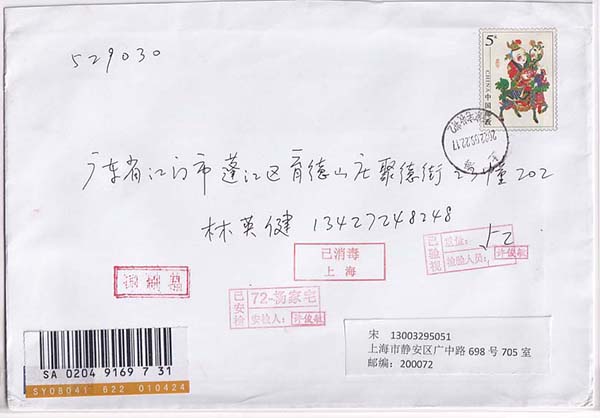 529030
5元
CHINA 中国邮政
2022.09.22.17
广东省江门市蓬江区育德山庄聚德街23幢202
林英健 13427248248
已消毒
上海
已验视
重量: 52
检验人员: 许俊敏
已安检
72-杨家宅
安检人: 许俊敏
SA 0204 9169 7 31
SY08041 622 010424
宋 13003295051
上海市静安区广中路 698 号 705 室
邮编: 200072